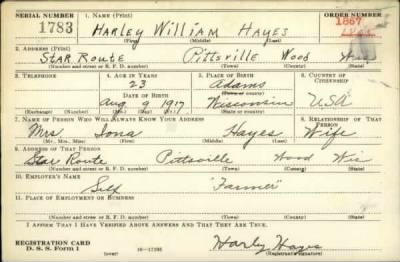 SERIAL NUMBER 1. NAME (Print) ORDER NUMBER
1783 HARLEY WILLIAM HAYES 1867
(First) (Middle) (Last)
2. ADDRESS (Print)
STAR ROUTE Pittsville Wood Wis
(Number and street or R. F. D. number) (Town) (County) (State)
3. TELEPHONE 4. AGE IN YEARS 5. PLACE OF BIRTH 6. COUNTRY OF CITIZENSHIP
23 Adams
DATE OF BIRTH (Town or county)
Aug 9 1917 Wisconsin USA
(Exchange) (Number) (Mo.) (Day) (Yr.) (State or country)
7. NAME OF PERSON WHO WILL ALWAYS KNOW YOUR ADDRESS 8. RELATIONSHIP OF THAT PERSON
Mrs. Iona Hayes Wife
(Mr., Mrs., Miss) (First) (Middle) (Last)
9. ADDRESS OF THAT PERSON
Star Route Pittsville Wood Wis
(Number and street or R. F. D. number) (Town) (County) (State)
10. EMPLOYER'S NAME
Self "Farmer"
11. PLACE OF EMPLOYMENT OR BUSINESS
(Number and street or R. F. D. number) (Town) (County) (State)
I AFFIRM THAT I HAVE VERIFIED ABOVE ANSWERS AND THAT THEY ARE TRUE.
REGISTRATION CARD
D. S. S. Form 1 (over) Harley Hayes
(Registrant's signature)